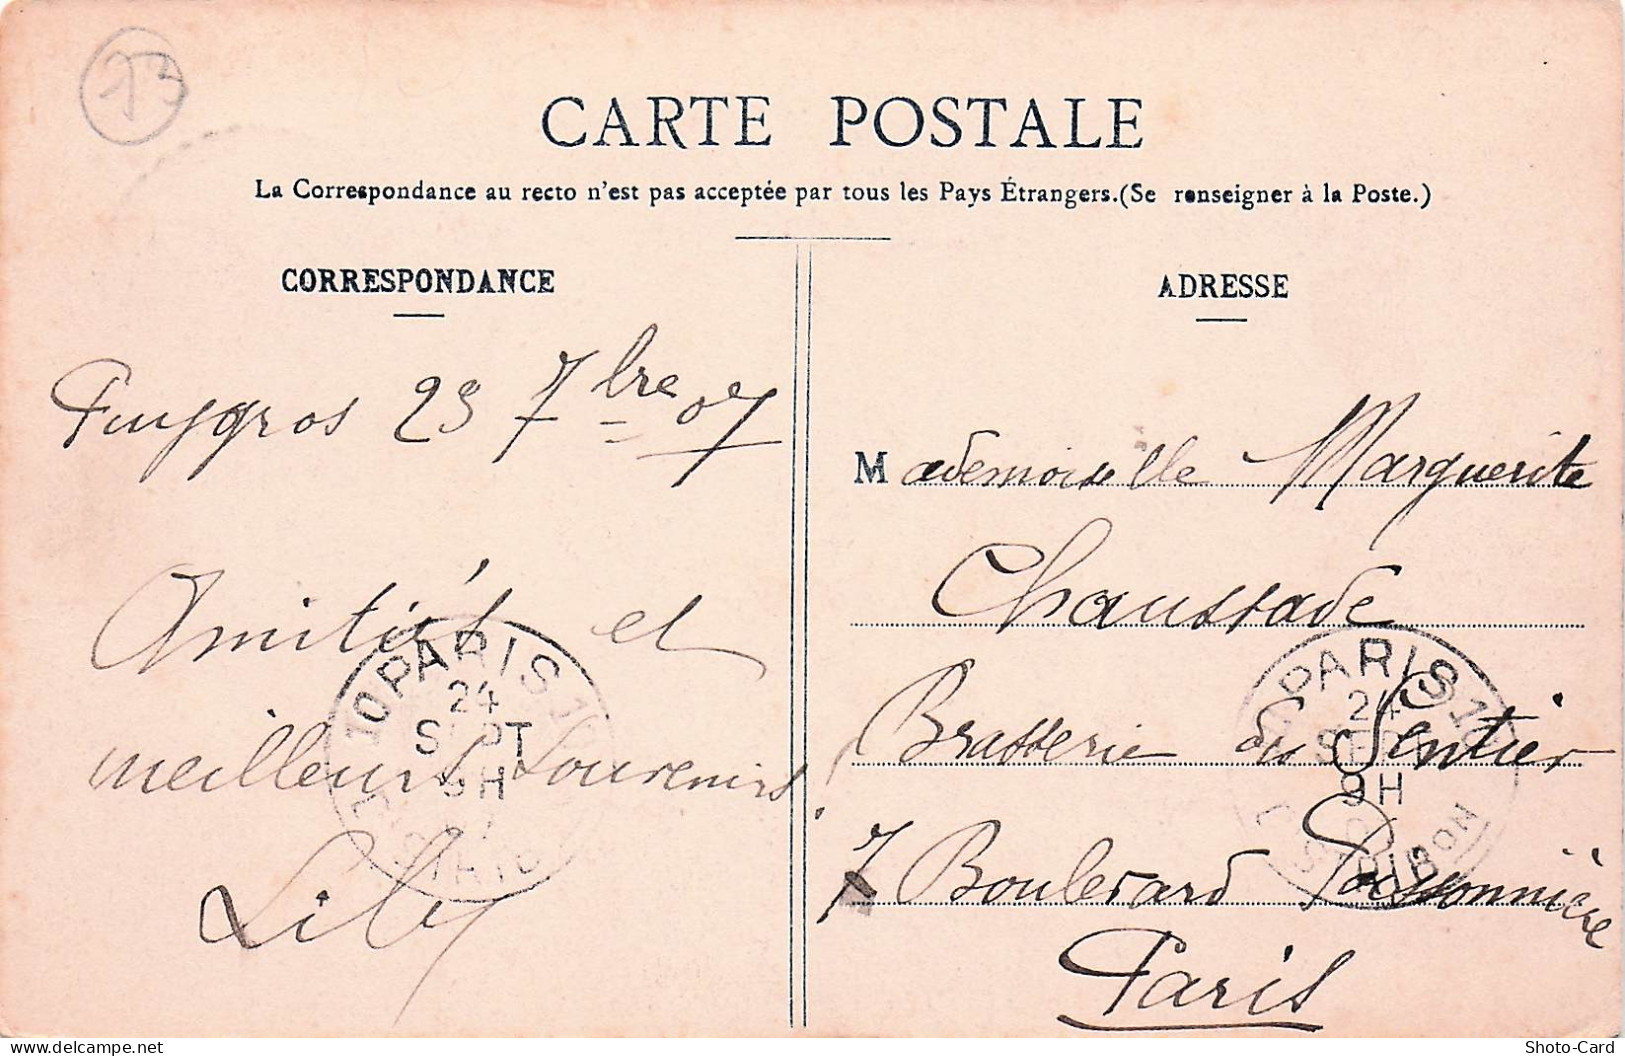 13
CARTE POSTALE
La Correspondance au recto n'est pas acceptée par tous les Pays Étrangers.(Se renseigner à la Poste.)
CORRESPONDANCE
Puygros 23 7bre 07
Amitiés et
meilleurs souvenirs.
Lily
ADRESSE
Mademoiselle Marguerite
Chaussade
Brasserie du Sentier
7 Boulevard Poissonnière
Paris
10 PARIS 10
24
SEPT
9H
PARIS 10
24
SEPT
9H
DISTRIBUTION
delcampe.net
Shoto-Card